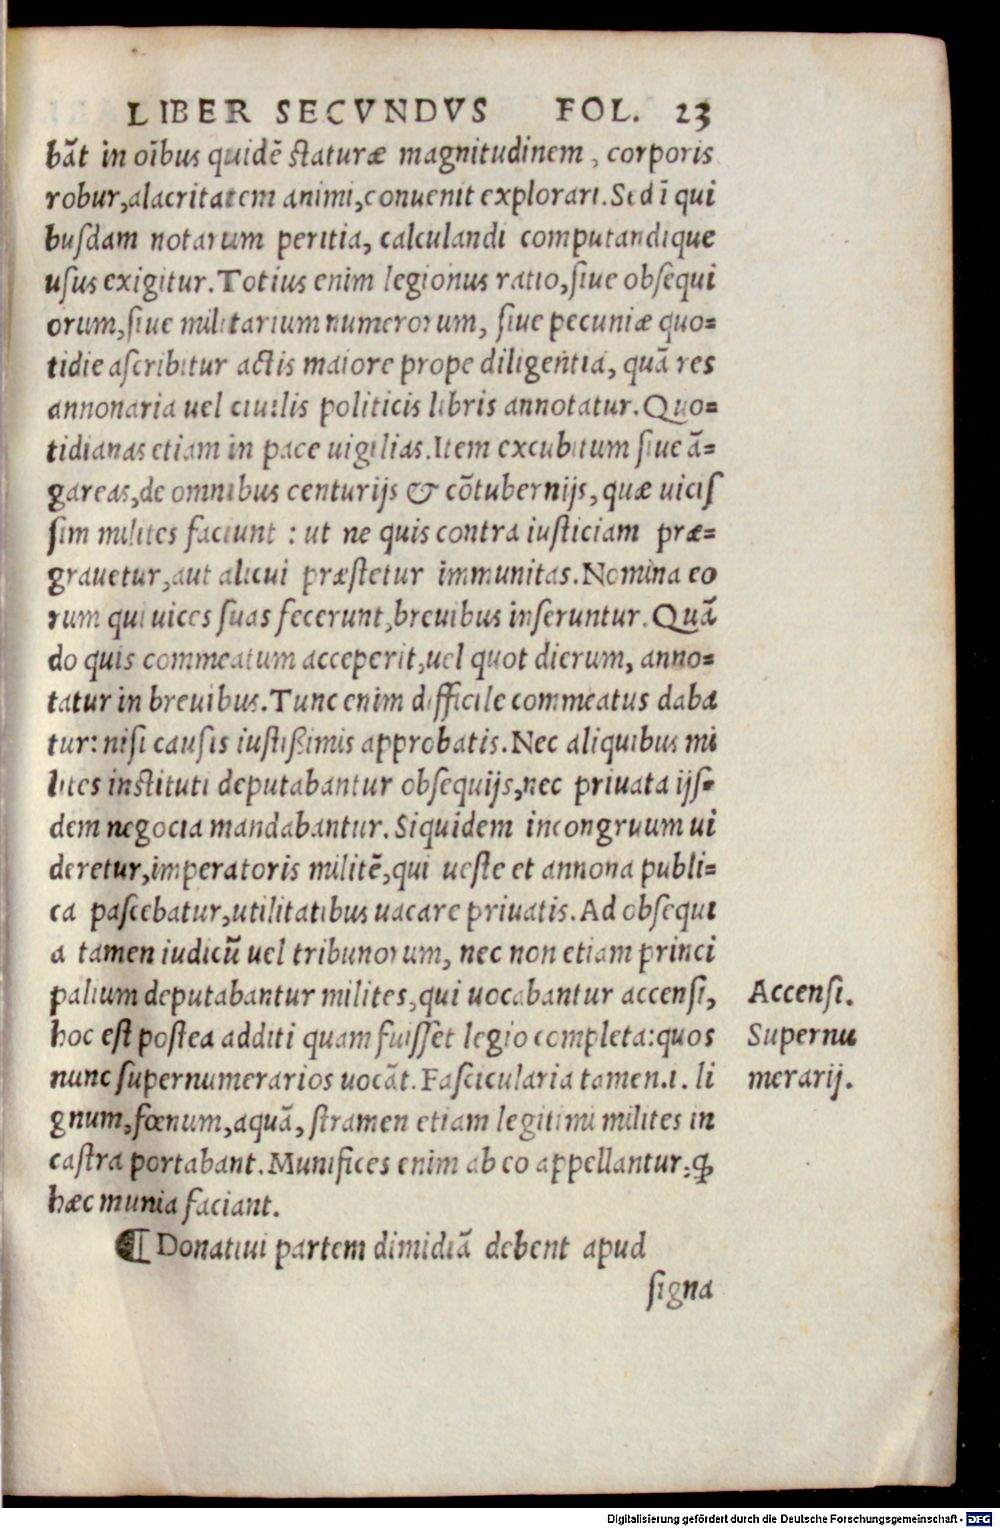 LIBER SECVNDVS FOL. 23
bāt in oībus quidē staturæ magnitudinem, corporis
robur, alacritatem animi, conuenit explorari. Sed ī qui
busdam notarum peritia, calculandi computandique
usus exigitur. Totius enim legionus ratio, siue obsequi
orum, siue militarium numerorum, siue pecuniæ quo=
tidie ascribitur actis maiore prope diligentia, quā res
annonaria uel ciuilis politicis libris annotatur. Quo=
tidianas etiam in pace uigilias. Item excubitum siue ā=
gareas, de omnibus centurijs & cōtubernijs, quæ uicis
sim milites faciunt : ut ne quis contra iusticiam præ=
grauetur, aut alicui præstetur immunitas. Nomina eo
rum qui uices suas fecerunt, breuibus inseruntur. Quā
do quis commeatum acceperit, uel quot dierum, anno=
tatur in breuibus. Tunc enim difficile commeatus daba
tur: nisi causis iustißimis approbatis. Nec aliquibus mi
lites instituti deputabantur obsequijs, nec priuata ijs=
dem negocia mandabantur. Siquidem incongruum ui
deretur, imperatoris militē, qui ueste et annona publi=
ca pascebatur, utilitatibus uacare priuatis. Ad obsequi
a tamen iudicū uel tribunorum, nec non etiam princi
palium deputabantur milites, qui uocabantur accensi,
hoc est postea additi quam fuisset legio completa: quos
nunc supernumerarios uocāt. Fascicularia tamen .i. li
gnum, fœnum, aquā, stramen etiam legitimi milites in
castra portabant. Munifices enim ab eo appellantur: ꝙ
hæc munia faciant.
¶ Donatiui partem dimidiā debent apud
signa
Accensi.
Supernu
merarij.
Digitalisierung gefördert durch die Deutsche Forschungsgemeinschaft - DFG